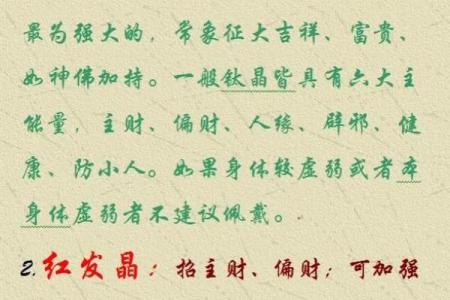 最为强大的，常象征大吉祥、富贵、
如神佛加持。一般钛晶皆具有六大主
能量，主财、偏财、人缘、辟邪、健
康、防小人。如果身体较虚弱或者本
身体虚弱者不建议佩戴。
2.红发晶：招主财、偏财；可加强